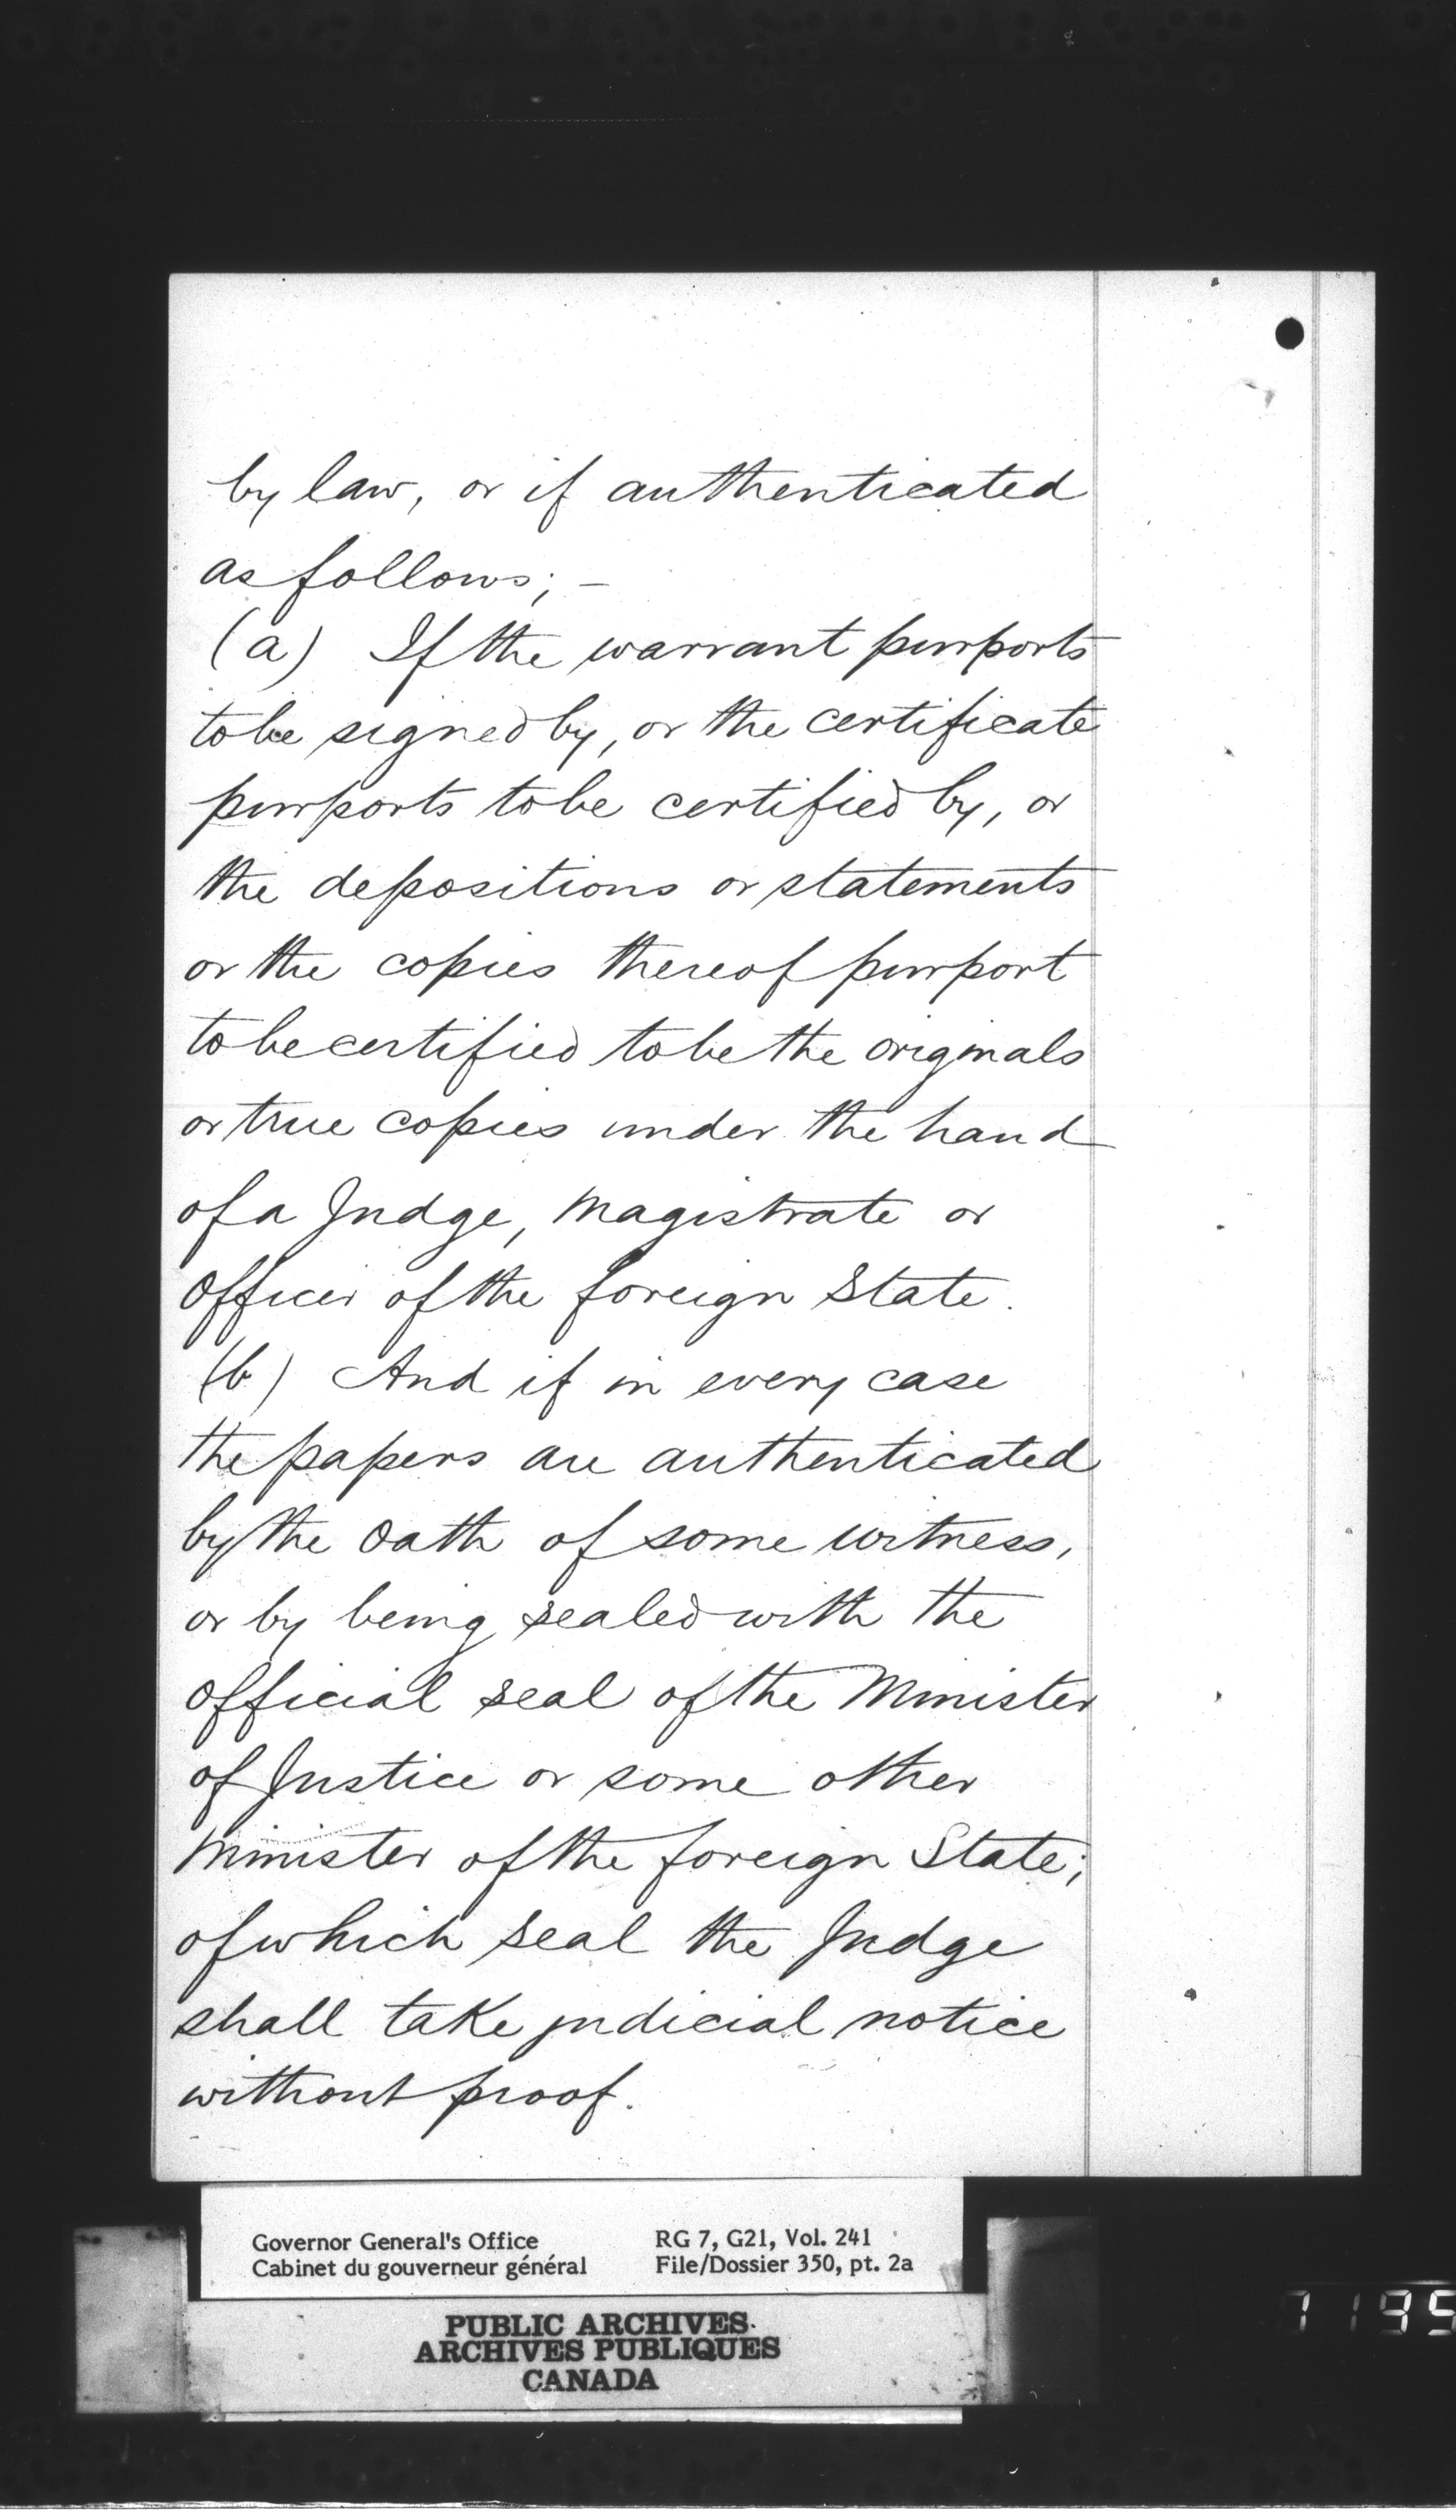 by law, or if authenticated
as follows; –
(a) If the warrant purports
to be signed by, or the certificate
purports to be certified by, or
the depositions or statements
or the copies thereof purport
to be certified to be the originals
or true copies under the hand
of a Judge, Magistrate or
Officer of the foreign State.
(b) And if in every case
the papers are authenticated
by the Oath of some witness,
or by being sealed with the
Official seal of the Minister
of Justice or some other
Minister of the foreign State;
of which seal the Judge
shall take judicial notice
without proof.
Governor General's Office
Cabinet du gouverneur général
RG 7, G21, Vol. 241
File/Dossier 350, pt. 2a
PUBLIC ARCHIVES
ARCHIVES PUBLIQUES
CANADA
1195